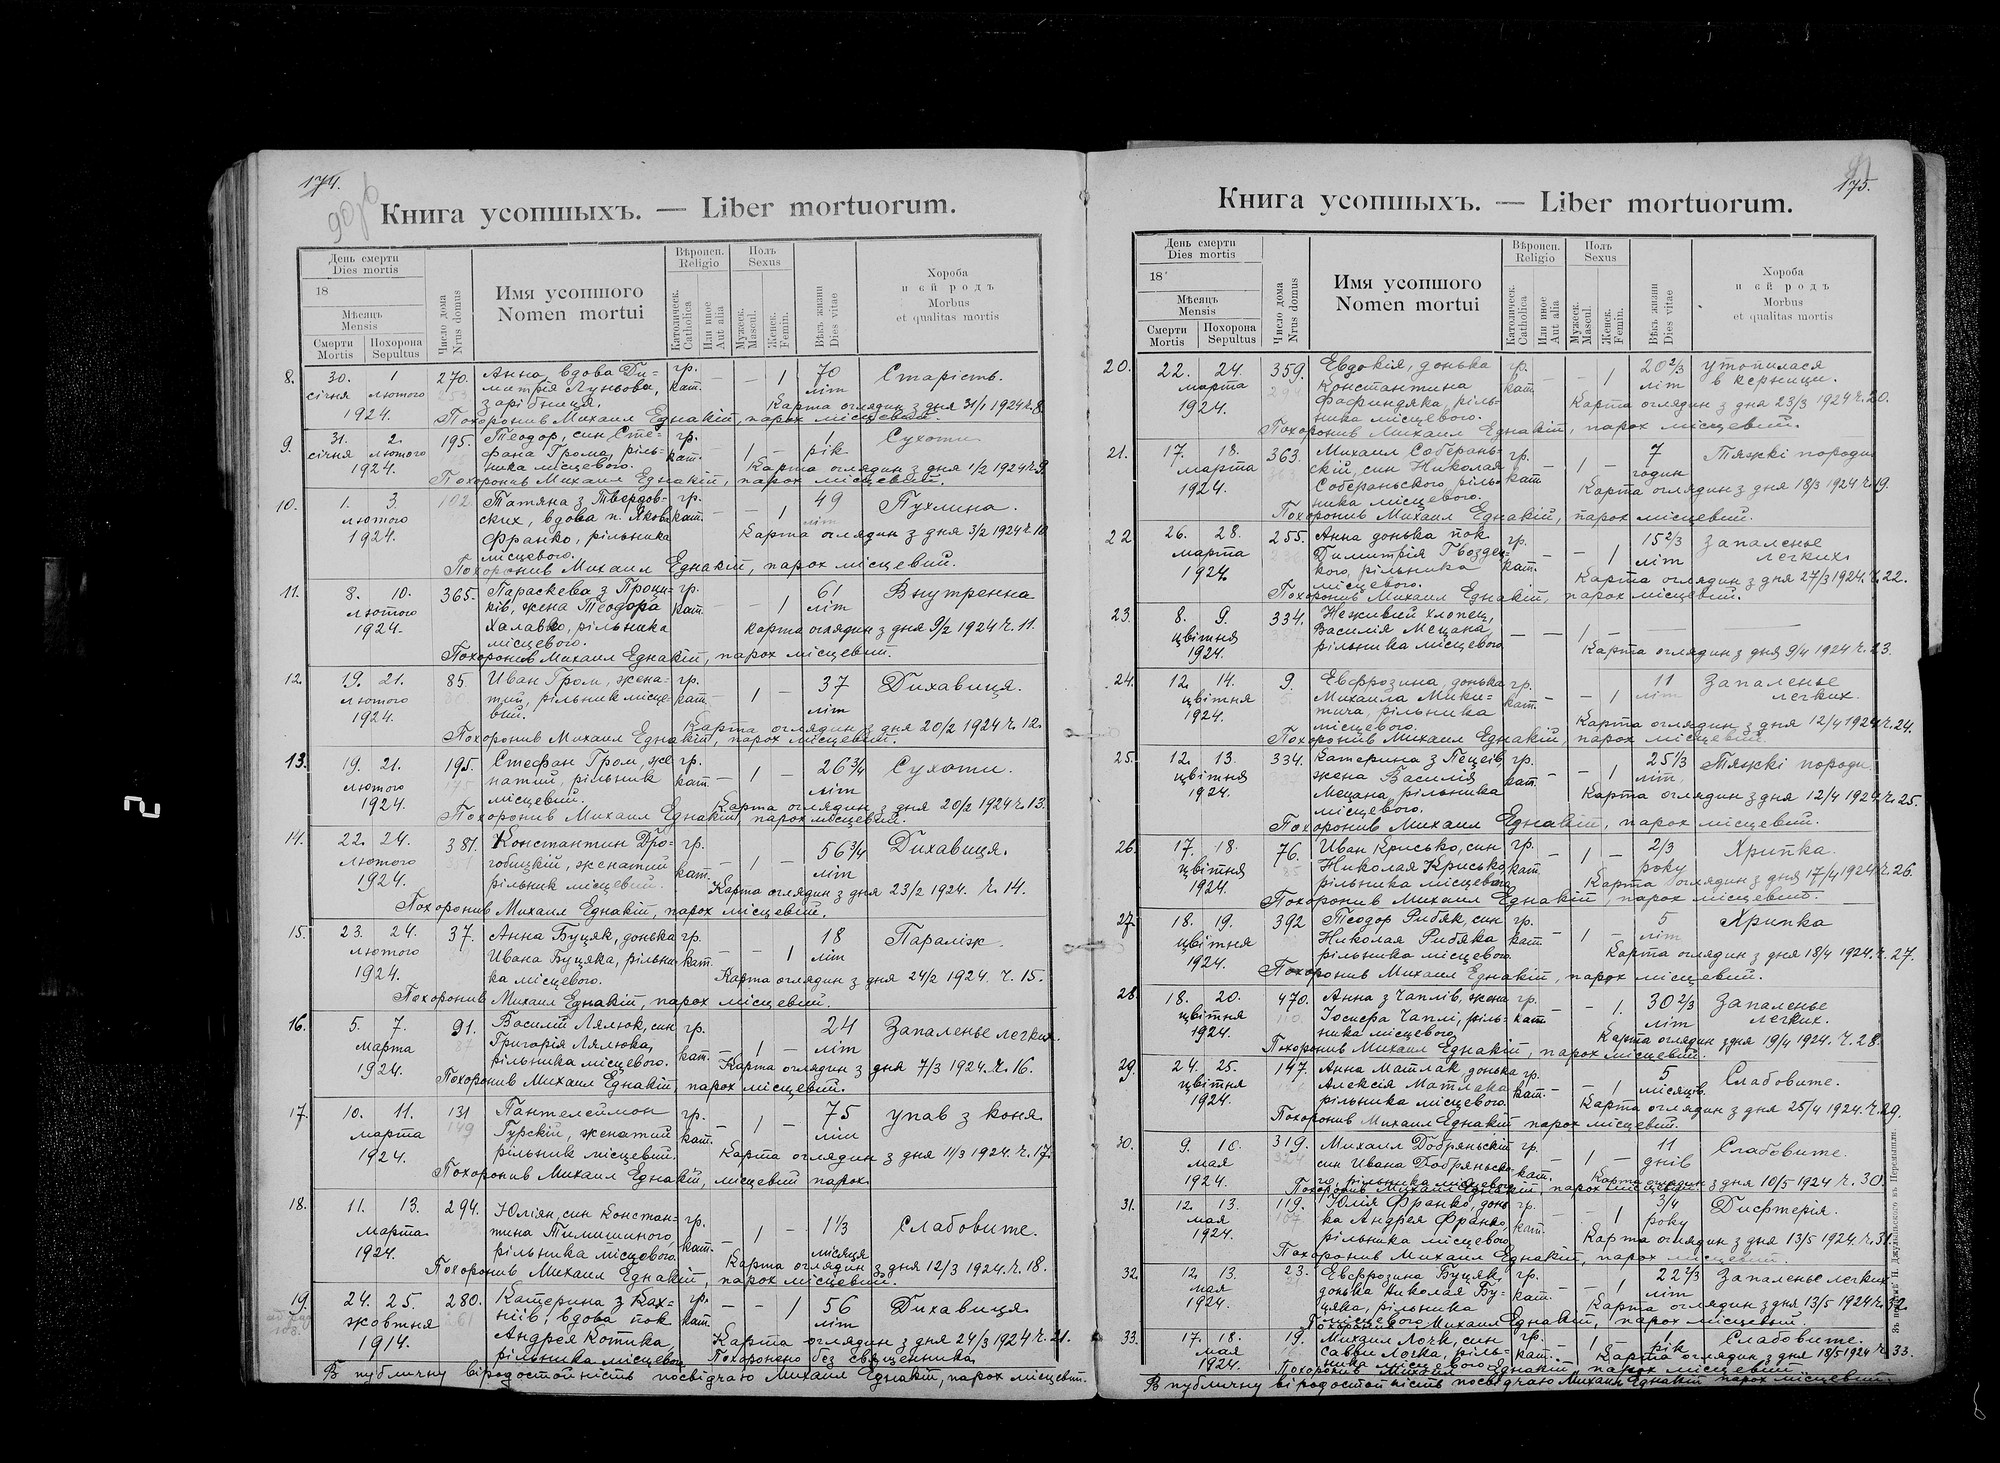 174.
Книга усопшыхъ. — Liber mortuorum.
День смерти
Dies mortis
18
Мѣсяць
Mensis
Смерти
Mortis
Похорона
Sepultus
Число дома
Nrus domus
Имя усопшого
Nomen mortui
Вѣроисп.
Religio
Католическ.
Catholica
Или иное
Aut alia
Полъ
Sexus
Мужеск.
Mascul.
Женск.
Femin.
Вѣкъ жизни
Dies vitae
Хороба
и ей родъ
Morbus
et qualitas mortis
8. 30. 1 270. Анна, вдова Ди- гр. – – 1 70 Старість.
січня лютого митрія Луньова, кат. літ
зарібниця. Карта оглядин з дня 31/1 1924 ч. 8.
1924.
Похоронив Михаил Еднакій, парох місцевий.
9. 31. 2. 195. Теодор, син Сте- гр. 1 – 1 Сухоти
січня лютого фана Грома, ріль- кат. рік
1924. ника місцевого. Карта оглядин з дня 1/2 1924 ч. 9.
Похоронив Михаил Еднакій, парох місцевий.
10. 1. 3. 102. Татяна з Твердов- гр. – – 1 49 Пухлина.
лютого ских, вдова п. Яков. кат. літ
1924. Франко, рільника Карта оглядин з дня 3/2 1924 ч. 10
місцевого.
Похоронив Михаил Еднакій, парох місцевий.
11. 8. 10. 365. Параскева з Проци- гр. – – 1 61 Внутренна
лютого ків, жена Теодора кат. літ
1924. Халавко, рільника Карта оглядин з дня 9/2 1924 ч. 11.
місцевого.
Похоронив Михаил Еднакій, парох місцевий.
12. 19. 21. 85. Иван Гром, жена- гр. – 1 – 37 Дихавиця.
лютого тий, рільник місце- кат. літ
1924. вий. Карта оглядин з дня 20/2 1924 ч. 12.
Похоронив Михаил Еднакій, парох місцевий.
13. 19. 21. 195. Стефан Гром, же гр. – 1 – 26 3/4 Сухоти.
лютого натий, рільник кат. літ
1924. місцевий. Карта оглядин з дня 20/2 1924 ч. 13.
Похоронив Михаил Еднакій, парох місцевий.
14. 22. 24. 381. Константин Дро- гр. – 1 – 56 3/4 Дихавиця.
лютого гобицкій, женатий кат. літ
1924. рільник місцевий. Карта оглядин з дня 23/2 1924. ч. 14.
Похоронив Михаил Еднакій, парох місцевий.
15. 23. 24. 37. Анна Буцяк, донька гр. – – 1 18 Параліж.
лютого Ивана Буцяка, рільни- кат. літ
1924. ка місцевого. Карта оглядин з дня 24/2 1924. ч. 15.
Похоронив Михаил Еднакій, парох місцевий.
16. 5. 7. 91. Василій Лялюк, син гр. – 1 – 24 Запаленье легких.
марта 87 Григорія Лялюка, кат. літ
1924. рільника місцевого. Карта оглядин з дня 7/3 1924. ч. 16.
Похоронив Михаил Еднакій, парох місцевий.
17. 10. 11. 131 Пантелеймон гр. – 1 – 75 упав з коня.
марта 149 Гурскій, женатий кат. літ
1924. рільник місцевий. Карта оглядин з дня 11/3 1924 ч. 17.
Похоронив Михаил Еднакій, місцевий парох.
18. 11. 13. 294. Юліян, син Констан- гр. – 1 – 1 1/3 Слабовите.
марта тина Тимишиного, кат. місяця
1924. рільника місцового Карта оглядин з дня 12/3 1924. ч. 18.
Похоронив Михаил Еднакій, парох місцевий.
19. 24. 25. 280. Катерина з Ках- гр. – – 1 56 Дихавиця
жовтня 261 ніїв, вдова пок кат. літ
1914. Андрея Котика, Карта оглядин з дня 24/3 1924 ч. 21.
рільника місцевого Похоронено без священника
В публичну віродостойність посвідчаю Михаил Еднакій, парох місцевий.
175.
Книга усопшыхъ. — Liber mortuorum.
День смерти
Dies mortis
18
Мѣсяць
Mensis
Смерти
Mortis
Похорона
Sepultus
Число дома
Nrus domus
Имя усопшого
Nomen mortui
Вѣроисп.
Religio
Католическ.
Catholica
Или иное
Aut alia
Полъ
Sexus
Мужеск.
Mascul.
Женск.
Femin.
Вѣкъ жизни
Dies vitae
Хороба
и ей родъ
Morbus
et qualitas mortis
20. 22. 24. 359. Евдокія, донька гр. – – 1 20 2/3 утопилася
марта 294 Константина кат. літ в керници.
1924. Фафиндяка, ріль- Карта оглядин з дна 23/3 1924 ч. 20.
ника місцевого.
Похоронив Михаил Еднакій, парох місцевий.
21. 17. 18. 363. Михаил Соберань- гр. – 1 – 7 Тяжкі породи
марта скій, син Николая кат годин
1924. Собераньского, ріль- Карта оглядин з дня 18/3 1924 ч. 19.
ника місцевого.
Похоронив Михаил Еднакій, парох місцевий.
22 26. 28. 255. Анна донька пок гр. – – 1 15 2/3 Запаленье
марта Димитрія Гвоздец- кат. літ легких
1924. кого, рільника Карта оглядин з дня 27/3 1924. ч. 22.
місцевого.
Похоронив Михаил Еднакій, парох місцевий.
23. 8. 9. 334. Неживий хлопец,
цвітня Василія Мецана, – – 1 –
1924. рільника місцевого Карта оглядин з дня 9/4 1924 ч. 23.
24. 12. 14. 9. Евфрозина, донька гр. – – 1 11 Запаленье
цвітня Михаила Мики- кат. літ легких.
1924. тича, рільника Карта оглядин з дня 12/4 1924 ч. 24.
місцевого
Похоронив Михаил Еднакій, парох місцевий.
25. 12. 13. 334. Катерина з Пецеїв, гр. – – 1 25 1/3 Тяжкі породи.
цвітня жена Василія кат. літ.
1924. Мецана рільника Карта оглядин з дня 12/4 1924 ч. 25.
місцевого.
Похоронив Михаил Еднакій, парох місцевий.
26. 17. 18. 76. Иван Крисько, син гр. – 1 – 2/3 Хрипка.
цвітня 85 Николая Крисько кат. року
1924. рільника місцевого Карта оглядин з дня 17/4 1924 ч. 26.
Похоронив Михаил Еднакій, парох місцевий.
27. 18. 19. 392 Теодор Рибяк, син гр. – 1 – 5 Хрипка
цвітня Николая Рибяка кат. літ
1924. рільника місцевого. Карта оглядин з дня 18/4 1924. ч. 27.
Похоронив Михаил Еднакій, парох місцевий.
28. 18. 20. 470. Анна з Чаплів, жена гр. – 1. 30 2/3 Запаленье
цвітня Іосифа Чаплі, ріль- кат літ легких.
1924. ника місцевого. Карта оглядин з дня 19/4 1924. ч. 28.
Похоронив Михаил Еднакій, парох місцевий.
29. 24. 25. 147. Анна Матлак донька гр. – – 1 5 Слабовите.
цвітня Алексія Матлака кат. місяців
1924. рільника місцевого. Карта оглядин з дня 25/4 1924. ч. 29.
Похоронив Михаил Еднакій парох місцевий.
30. 9. 10. 319. Михаил Добряньскій гр. – 1 – 11 Слабовите.
мая син Ивана Добряньско- кат. днів
1924. го, рільника місцевого Карта оглядин з дня 10/5 1924 ч. 30.
Похоронив Михаил Еднакій, парох місцевий.
31. 12. 13. 119. Юлія Франко, донь- гр. – – 1 3/4 Дифтерія.
мая 107 ка Андрея Франко, кат. року
1924. рільника місцевого Карта оглядин з дня 13/5 1924 ч. 31.
Похоронив Михаил Еднакій, парох місцевий.
32. 12. 13. 23. Евфрозина Буцяк, гр. – – 1 22 2/3 Запаленье легких
мая донька Николая Бу- кат. літ
1924. цяка, рільника Карта оглядин з дня 13/5 1924 ч. 32.
місцевого
Похоронив Михаил Еднакій, парох місцевий.
33. 17. 18. 19. Михаил Лочк, син гр. – 1 – 1 Слабовите.
мая Савви Лочка, ріль- кат. рік
1924. ника місцевого Карта оглядин з дня 18/5 1924 ч 33.
Похоронив Михаил Еднакій, парох місцевий
В публичну віродостойність посвідчаю Михаил Еднакій парох місцевий.